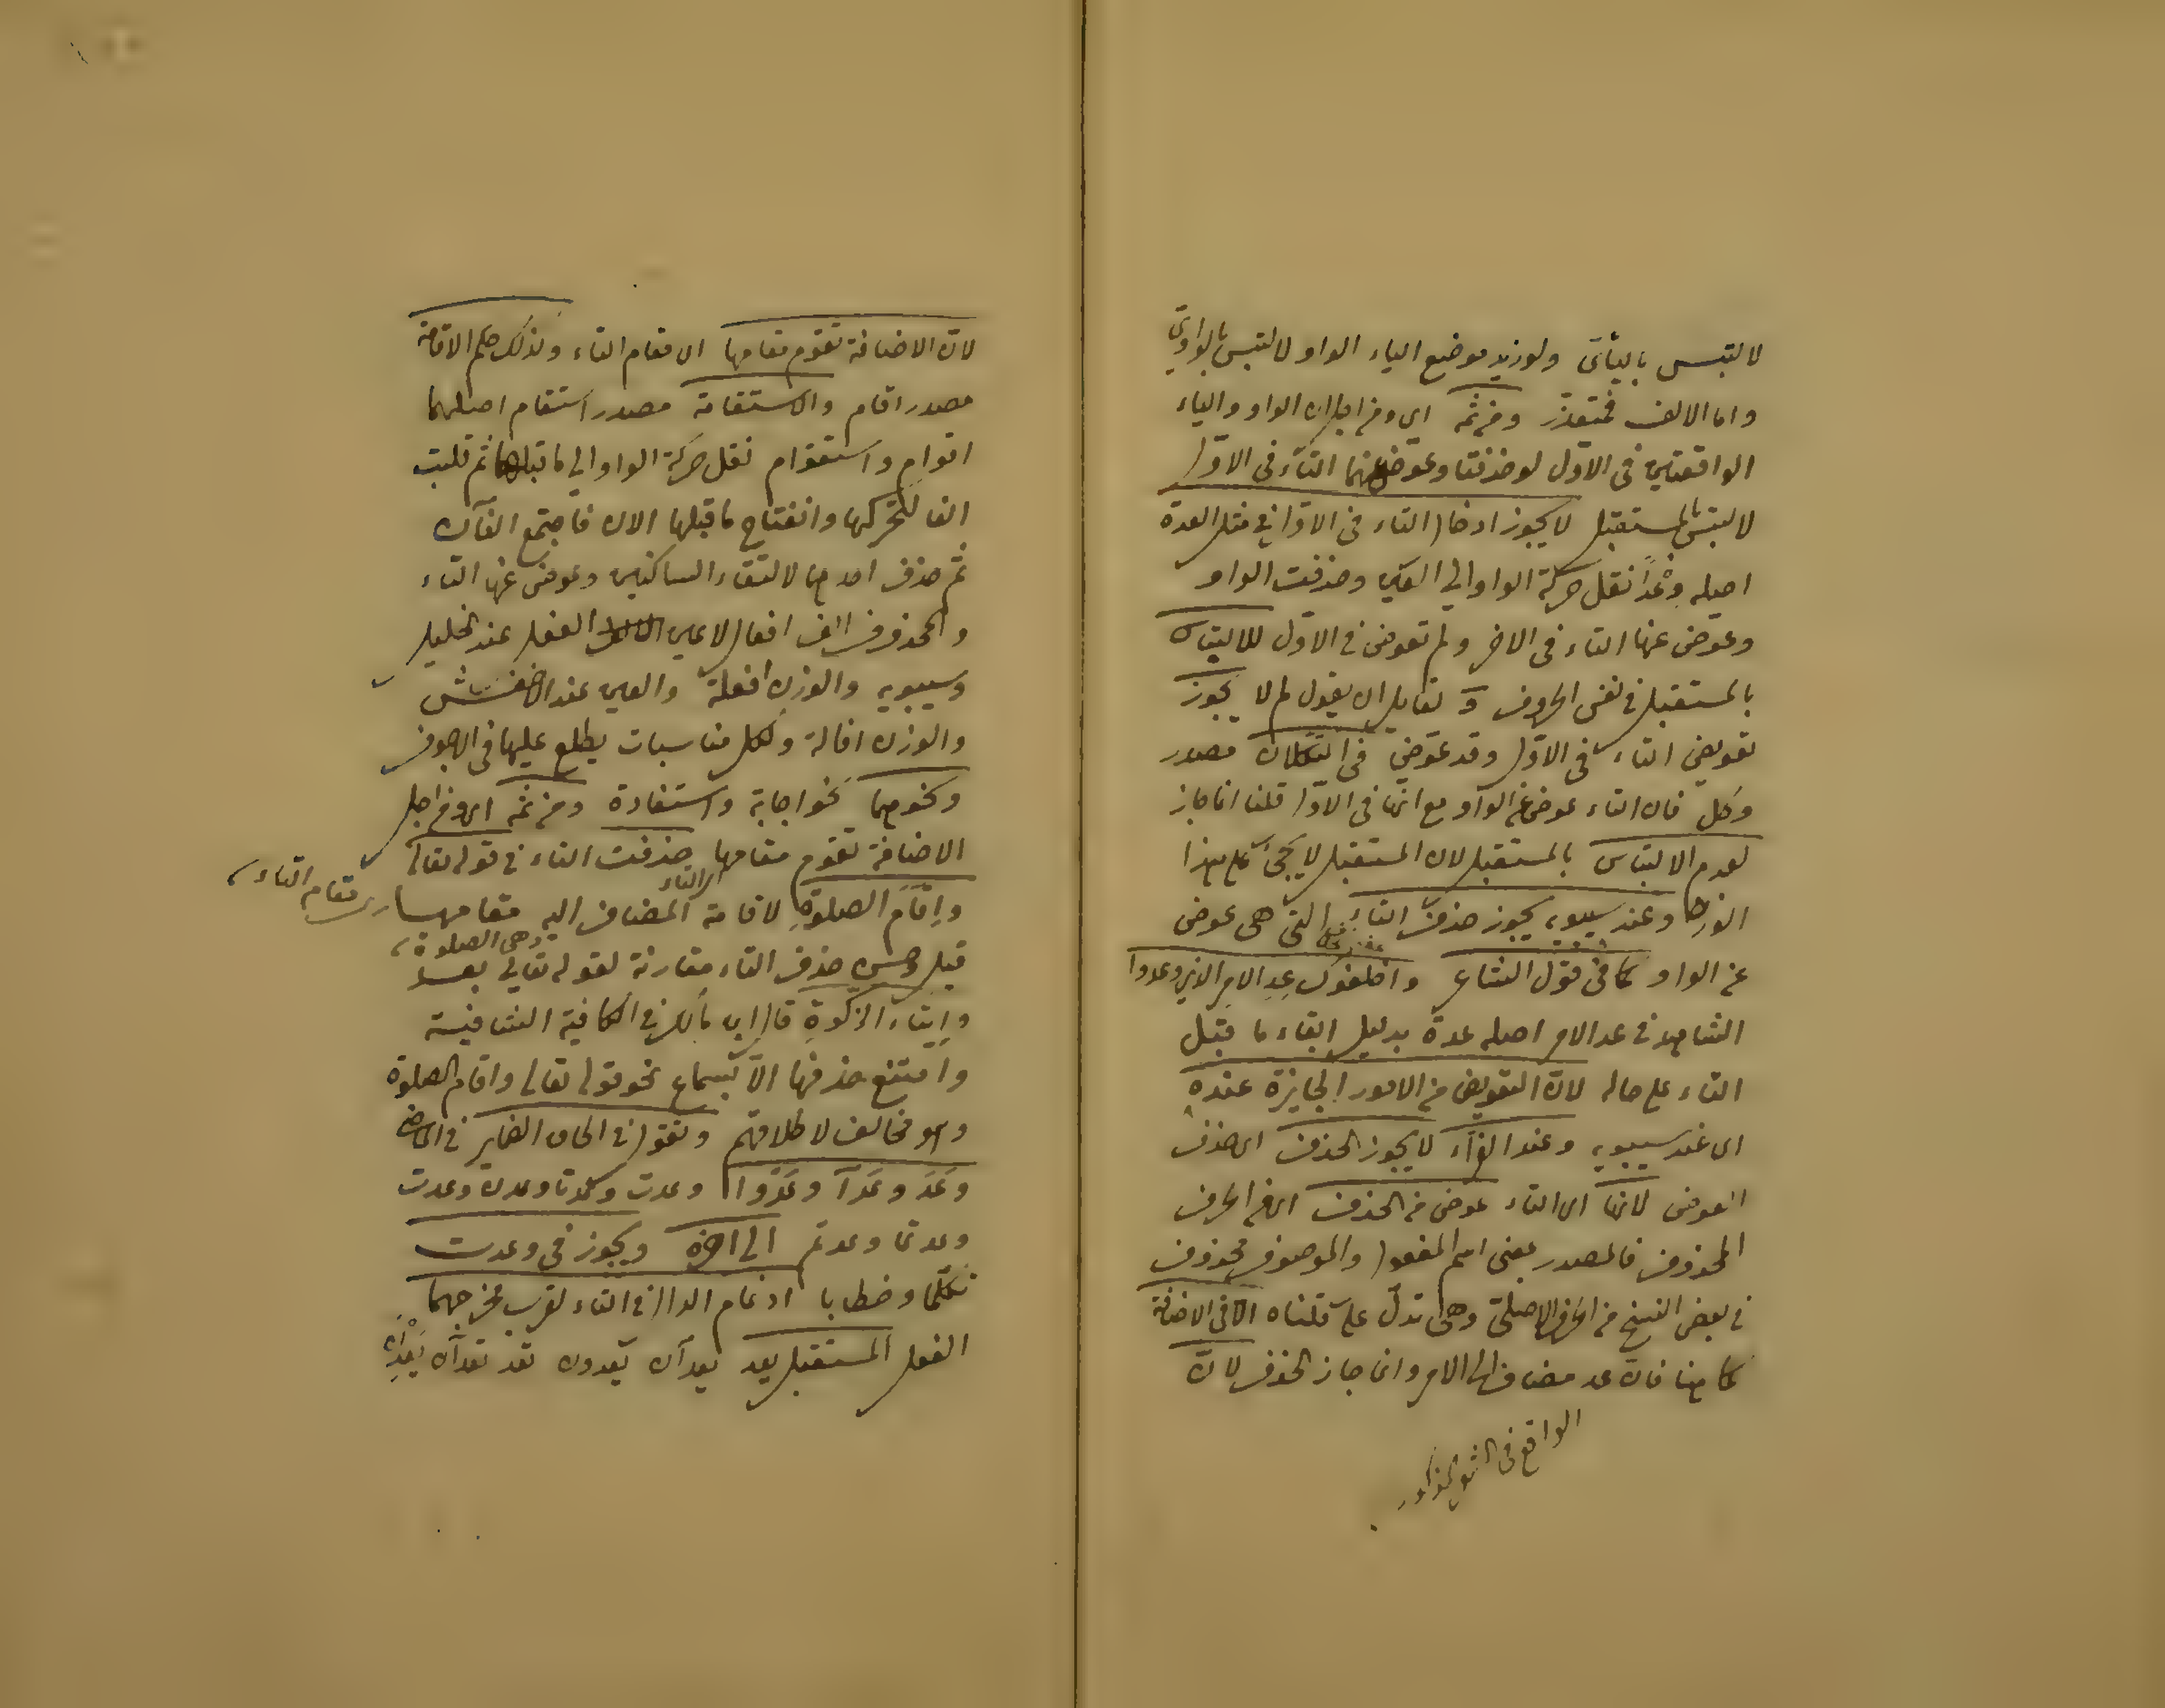 لالتبس باليائى ولو زيد موضع الياء الواو لالتبس بالواوىّ
واما الالف فمتعذّر ومن ثمّه اى ومن اجل ان الواو والياء
الواقعتين فى الاوّل لو حذفتا وعوض عنهما التاء فى الاوّل
لالتبس بالمستقبل لا يجوز ادخال التاء فى الاوّل فى مثل العدة
اصله وعْدًا نقل حركة الواو الى العين وحذفت الواو
وعوّض عنها التاء فى الاخر ولم تعوض فى الاوّل للالتباس
بالمستقبل فى نفس الحروف ولقايل ان يقول لم لا يجوز
تعويض التاء فى الاوّل وقد عوّض فى التكلان مصدر
وكل فان التاء عوض عن الواو مع انّها فى الاوّل قلنا انما جاز
لعدم الالتباس بالمستقبل لان المستقبل لا يجئ على هذا
الوزن وعند سيبويه يجوز حذف التاء التى هى عوض
عن الواو كما فى قول الشاعر واخلفوك عِدَ الامر الذى وعدوا
الشاهد فى عد الامر اصله عدة بدليل ابقاء ما قبل
التاء على حاله لانّ التعويض من الامور الجايزة عنده
اى عند سيبويه وعند الفرّاء لا يجوز الحذف اى حذف
العوض لانّها اى التاء عوض من الحذف اى من الحرف
المحذوف فالمصدر بمعنى اسم المفعول والموصوف محذوف
فى بعض النسخ من الحرف الاصلى وهى تدلّ على ما قلناه الّا فى الاضافة
كما هنا فانّ عد مضاف الى الامر وانما جاز الحذف لانّ
الواقع فى
لانّ الاضافة تقوم مقامها اى مقام التاء وكذلك حكم الاقامة
مصدر اقام والاستقامة مصدر استقام اصلهما
اقوام واستقوام نقل حركة الواو الى ما قبلها ثم قلبت
الفا لتحركها وانفتاح ما قبلها الان فاجتمع الفان
ثم حذف احدهما لالتقاء الساكنين وعوض عنها التاء
والمحذوف الف افعال لا عين الفعل عند الخليل
وسيبويه والوزن افعلة والعين عند الاخفش
والوزن افالة ولكل مناسبات يطلع عليها فى الاجوف
ونحوهما نحو اجابة واستفادة ومن ثمّه اى ومن اجل
الاضافة تقوم مقامها اى التاء حذفت التاء فى قوله تعالى
وإقَامَ الصلوةِ لاقامة المضاف اليه وهى الصلوة مقامها اى مقام التاء
قبل وحسن حذف التاء مقارنة لقوله تعالى بعد
وايتاء الزكوةِ قال ابن مالك فى الكافية الشافية
وامتنع حذفها الّا بسماع نحو قوله تعالى واقام الصلوة
وهو مخالف لاطلاقهم وتقول فى الحاق الضماير فى الماضى
وَعَدَ وعَدَا وعَدُوا وعدت وعدتا وعدن وعدت
وعدتما وعدتم الى اخره ويجوز فى وعدت
تكلّما وخطابا ادغام الدال فى التاء لقرب مخرجهما
الفعل المستقبل يعد يعدان يعدون تعد تعدان يَعِدْنَ